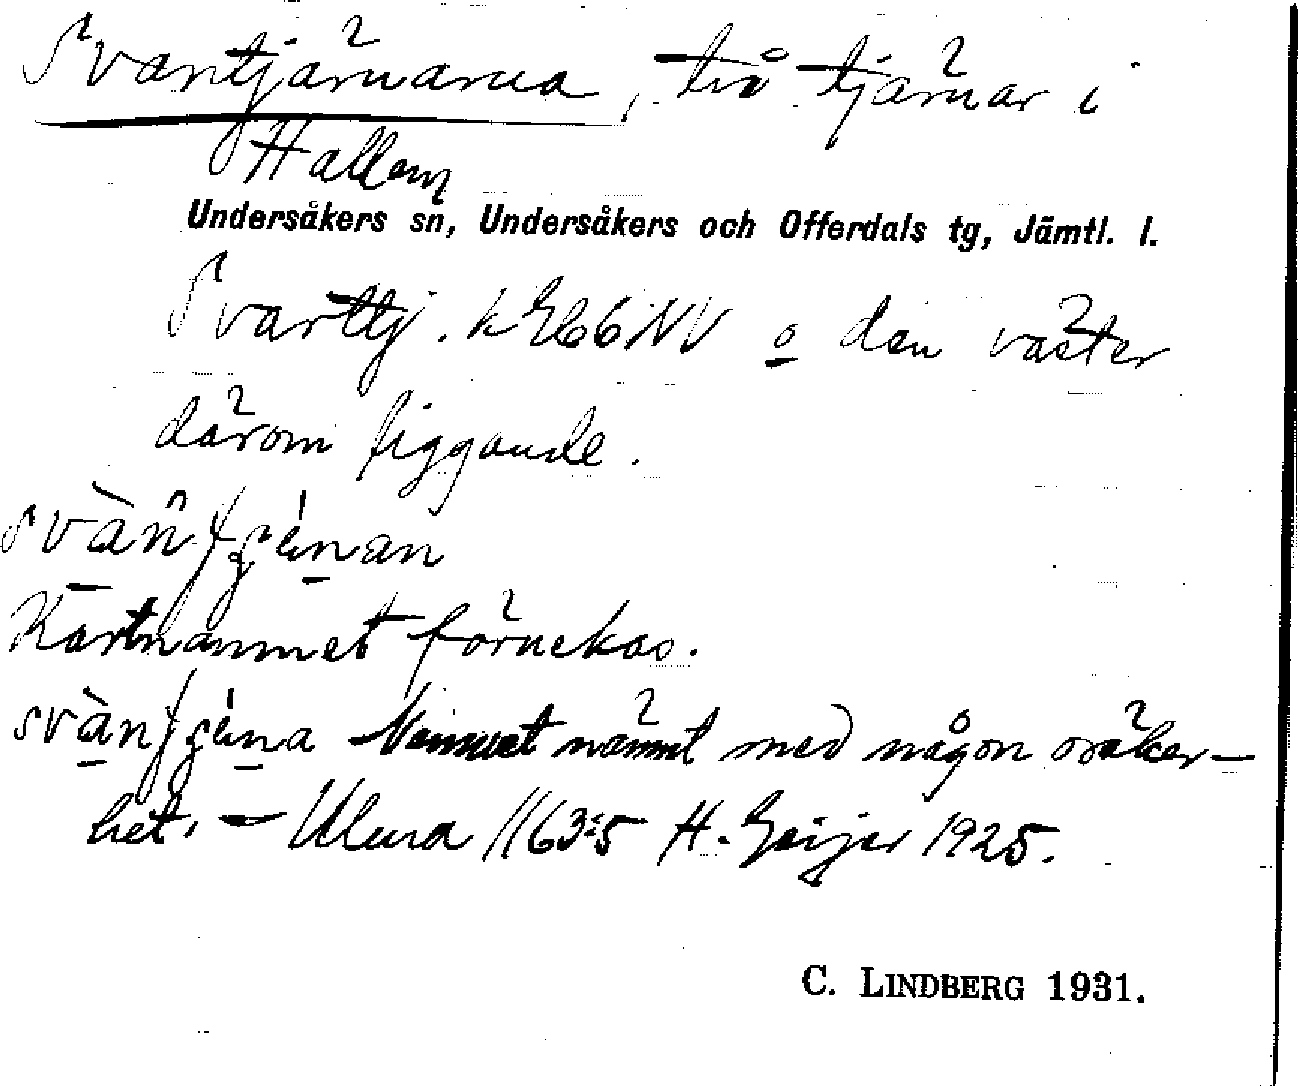 Svantjärnarna, två tjärnar i
Hallem
Undersåkers sn, Undersåkers och Offerdals tg, Jämtl. l.
Svarttj. k Gb6NV o den väster
därom liggande.
Kartnamnet förnekas.
Namnet nämnt med någon osäker-
het. – Ulma 1163:5 H. Geijer 1925.
C. LINDBERG 1931.